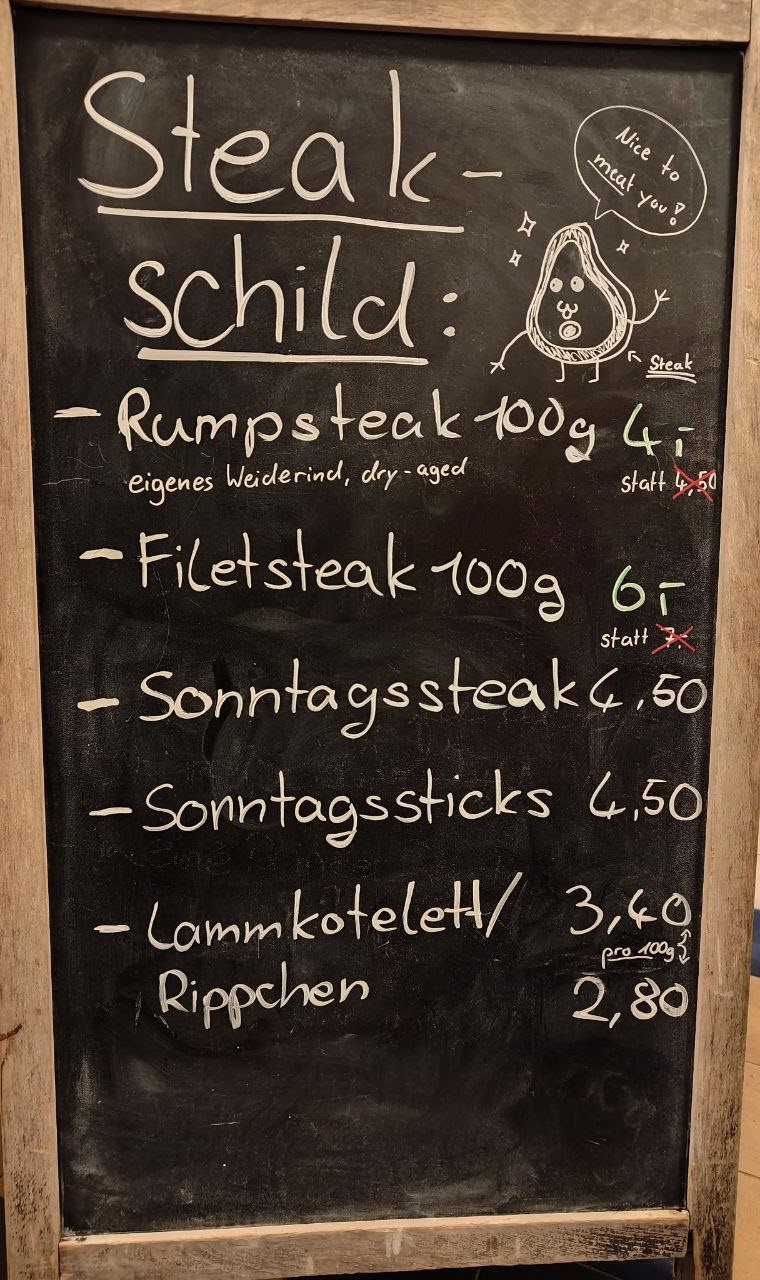 Steak-
schild:
Nice to
meat you!
Steak
- Rumpsteak 100g 4,-
eigenes Weiderind, dry-aged
statt 4,50
- Filetsteak 100g 6,-
statt 7,-
- Sonntagssteak 4,50
- Sonntagssticks 4,50
- Lammkotelett/ 3,40
pro 100g
Rippchen 2,80